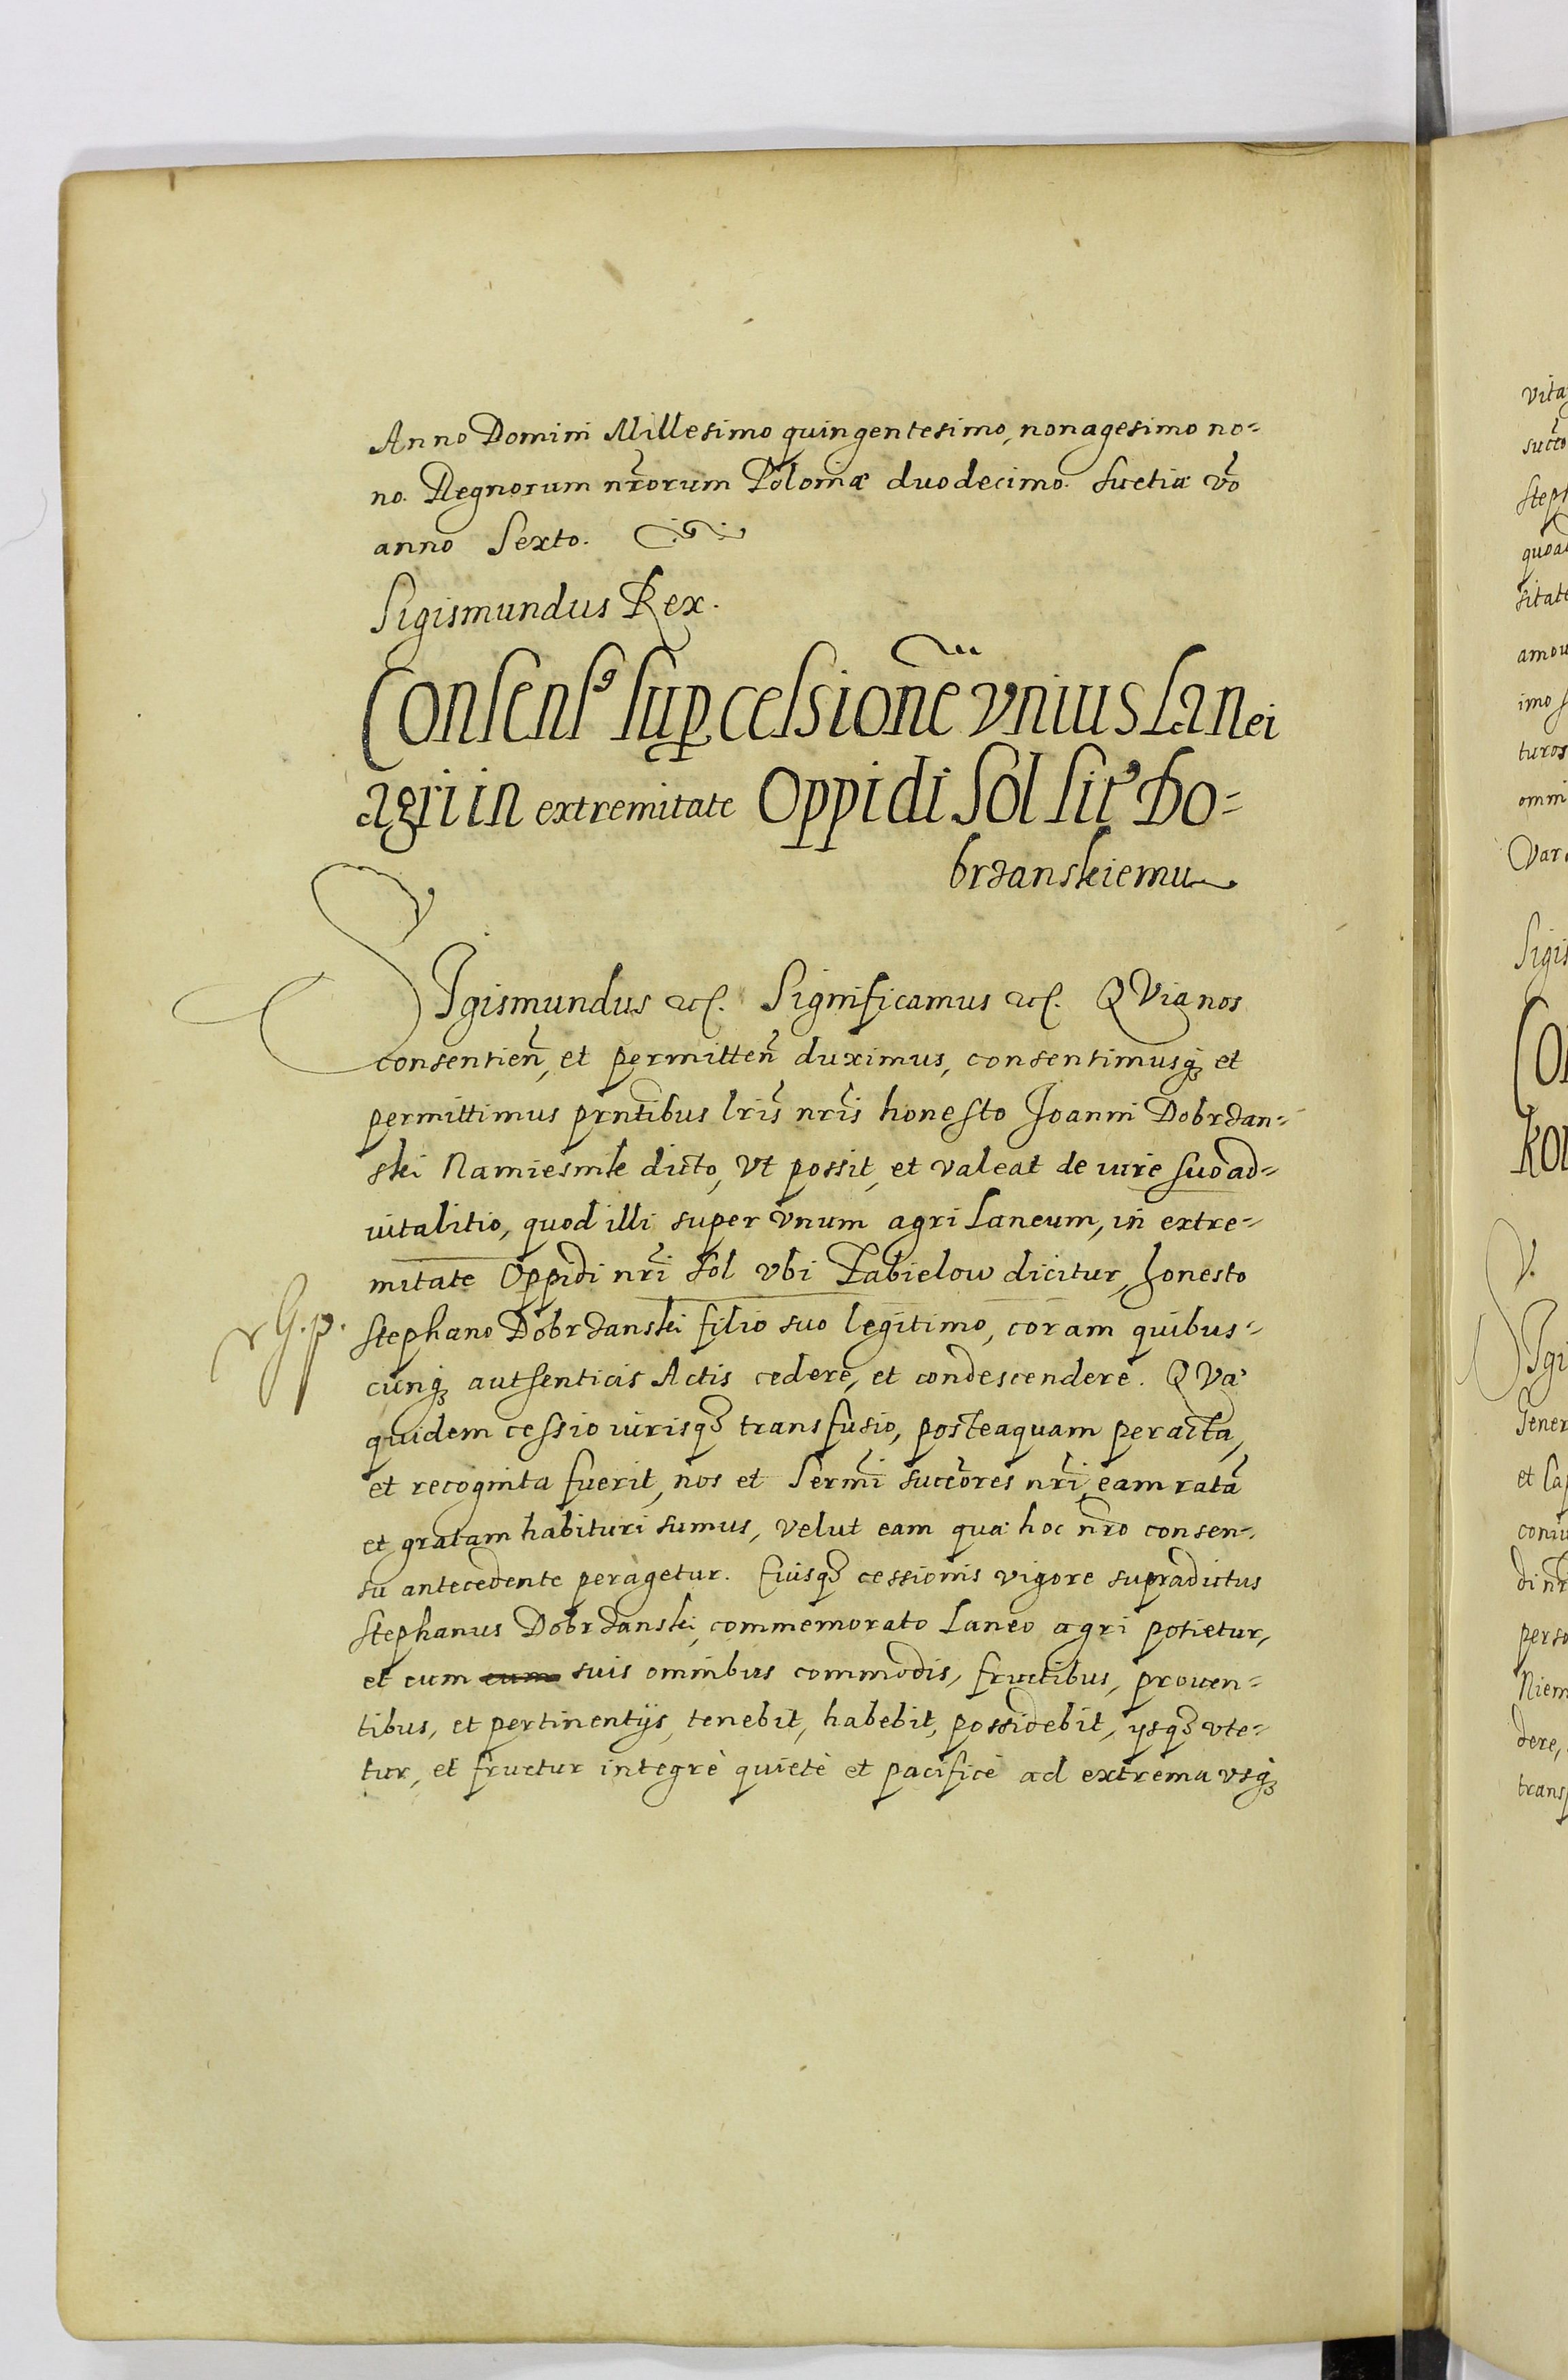 Anno Domini Millesimo quingentesimo, nonagesimo no=
no. Regnorum nr̃orum Poloniæ duodecimo. Suetiæ vo᷃
anno Sexto.
Sigismundus Rex.
Consensꝰ sup̱ cessione̅ vnius Lanei
agri in extremitate Oppidi Sol sit̉ Do=
brzanskiemu
SIgismundus etc. Significamus etc. QVia nos
consentien̄, et permitten̄ duximus, consentimusq́ꝫ et
permittimus prn̄tibus lris̄ nris̄ honesto Joanni Dobrzan=
ski Namiesnik dicto, Vt possit, et valeat de iure suo ad=
uitalitio, quod illi super vnum agri Laneum, in extre=
mitate Oppidi nrī Sol vbi Zabielow dicitur, honesto
G. p.
Stephano Dobrzanski filio suo legitimo, coram quibus=
cunq́ꝫ authenticis Actis cedere, et condescendere. QVæ
quidem cessio iurisqꝫ transfusio, posteaquam peracta,
et recognita fuerit, nos et Sermī succōres nrī eam ratā
et gratam habituri sumus, velut eam quæ hoc nr̄o consen=
su antecedente peragetur. Cuiusqꝫ cessionis vigore supradictus
Stephanus Dobrzanski, commemorato Laneo agri potietur,
et cum eum suis omnibus commodis, fructibus, prouen=
tibus, et pertinentijs, tenebit, habebit, possidebit, ysqꝫ vte=
tur, et fruetur integrè quietè et pacificè ad extrema vsq́ꝫ